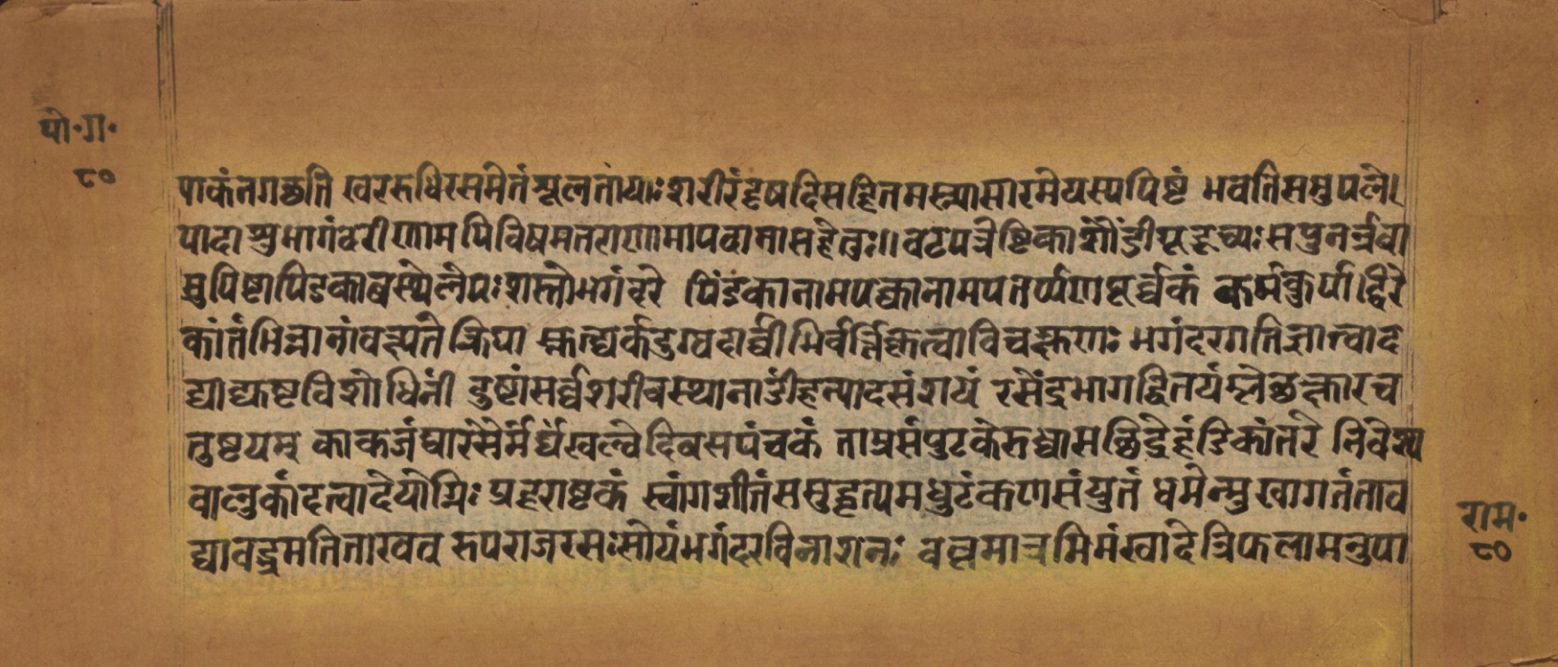 यो॰ग॰
८०
पाकं नगच्छति खररुधिरसमेतं भूलतायाः शरीरं दृषदिसहितमस्थ्नासारमेयस्यपिष्टं भवतिसमुपले।
पादाश्रुभागंदरीणामपिविषमतराणामापवानासहेतुः॥ वटपत्रेष्टिकाशौंडीगूडूच्यः सपुनर्न्नवा
सुपिष्टापिडकावस्थेलेपः शस्तोभगंदरे पिंडकानामपक्वानामपतर्प्पणपूर्व्वकं कर्मकुर्याद्विरे
कांतंभिन्नानांवक्ष्यतेक्रिया स्नुह्यर्कदुग्धदार्व्वीभिर्वर्त्तिंकृत्वाविचक्षणः भगंदरगतिंज्ञात्वाद
द्याद्व्रष्टविशोधिनीं दुष्टांसर्व्वशरीरस्थानाडींहन्यादसंशयं रसेंद्रभागद्वितयंम्लेच्छक्षारच
तुष्टयम् काकजंघारसैर्मर्द्यखल्वेदिवसपंचकं ताम्रसंपुटकेरुध्वासछिद्रेहंडिकांतरे निवेश्य
वालुकांदत्वादेयोग्निः प्रहराष्टकं स्वांगशीतंसमुद्धृत्यमधुटंकणसंयुतं धमेन्मुखागतंताव
द्यावद्द्रमतितारवत् रूपराजरसः सोयंभगंदरविनाशनः वल्लमात्रमिमंखादेत्रिफलामनुपा
राम॰
८०